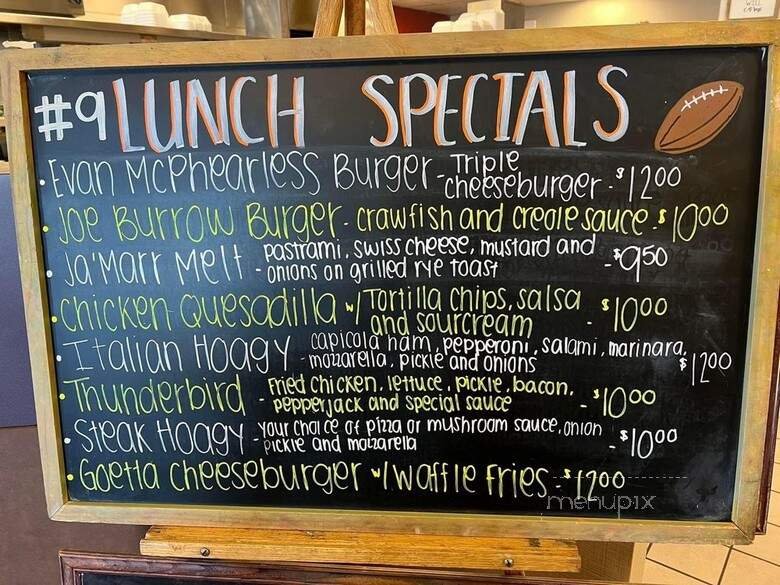 #9 LUNCH SPECIALS
• Evan McPhearless Burger - Triple cheeseburger - $12.00
• Joe Burrow Burger - crawfish and creole sauce - $10.00
• Ja'Marr Melt - pastrami, swiss cheese, mustard and onions on grilled rye toast - $9.50
• Chicken Quesadilla w/ Tortilla chips, salsa and sourcream - $10.00
• Italian Hoagy - capicola ham, pepperoni, salami, marinara, mozzarella, pickle and onions $12.00
• Thunderbird - Fried chicken, lettuce, pickle, bacon, pepperjack and special sauce - $10.00
• Steak Hoagy - your choice of pizza or mushroom sauce, onion pickle and mozzarella - $10.00
• Goetta cheeseburger w/ waffle fries - $12.00
menupix